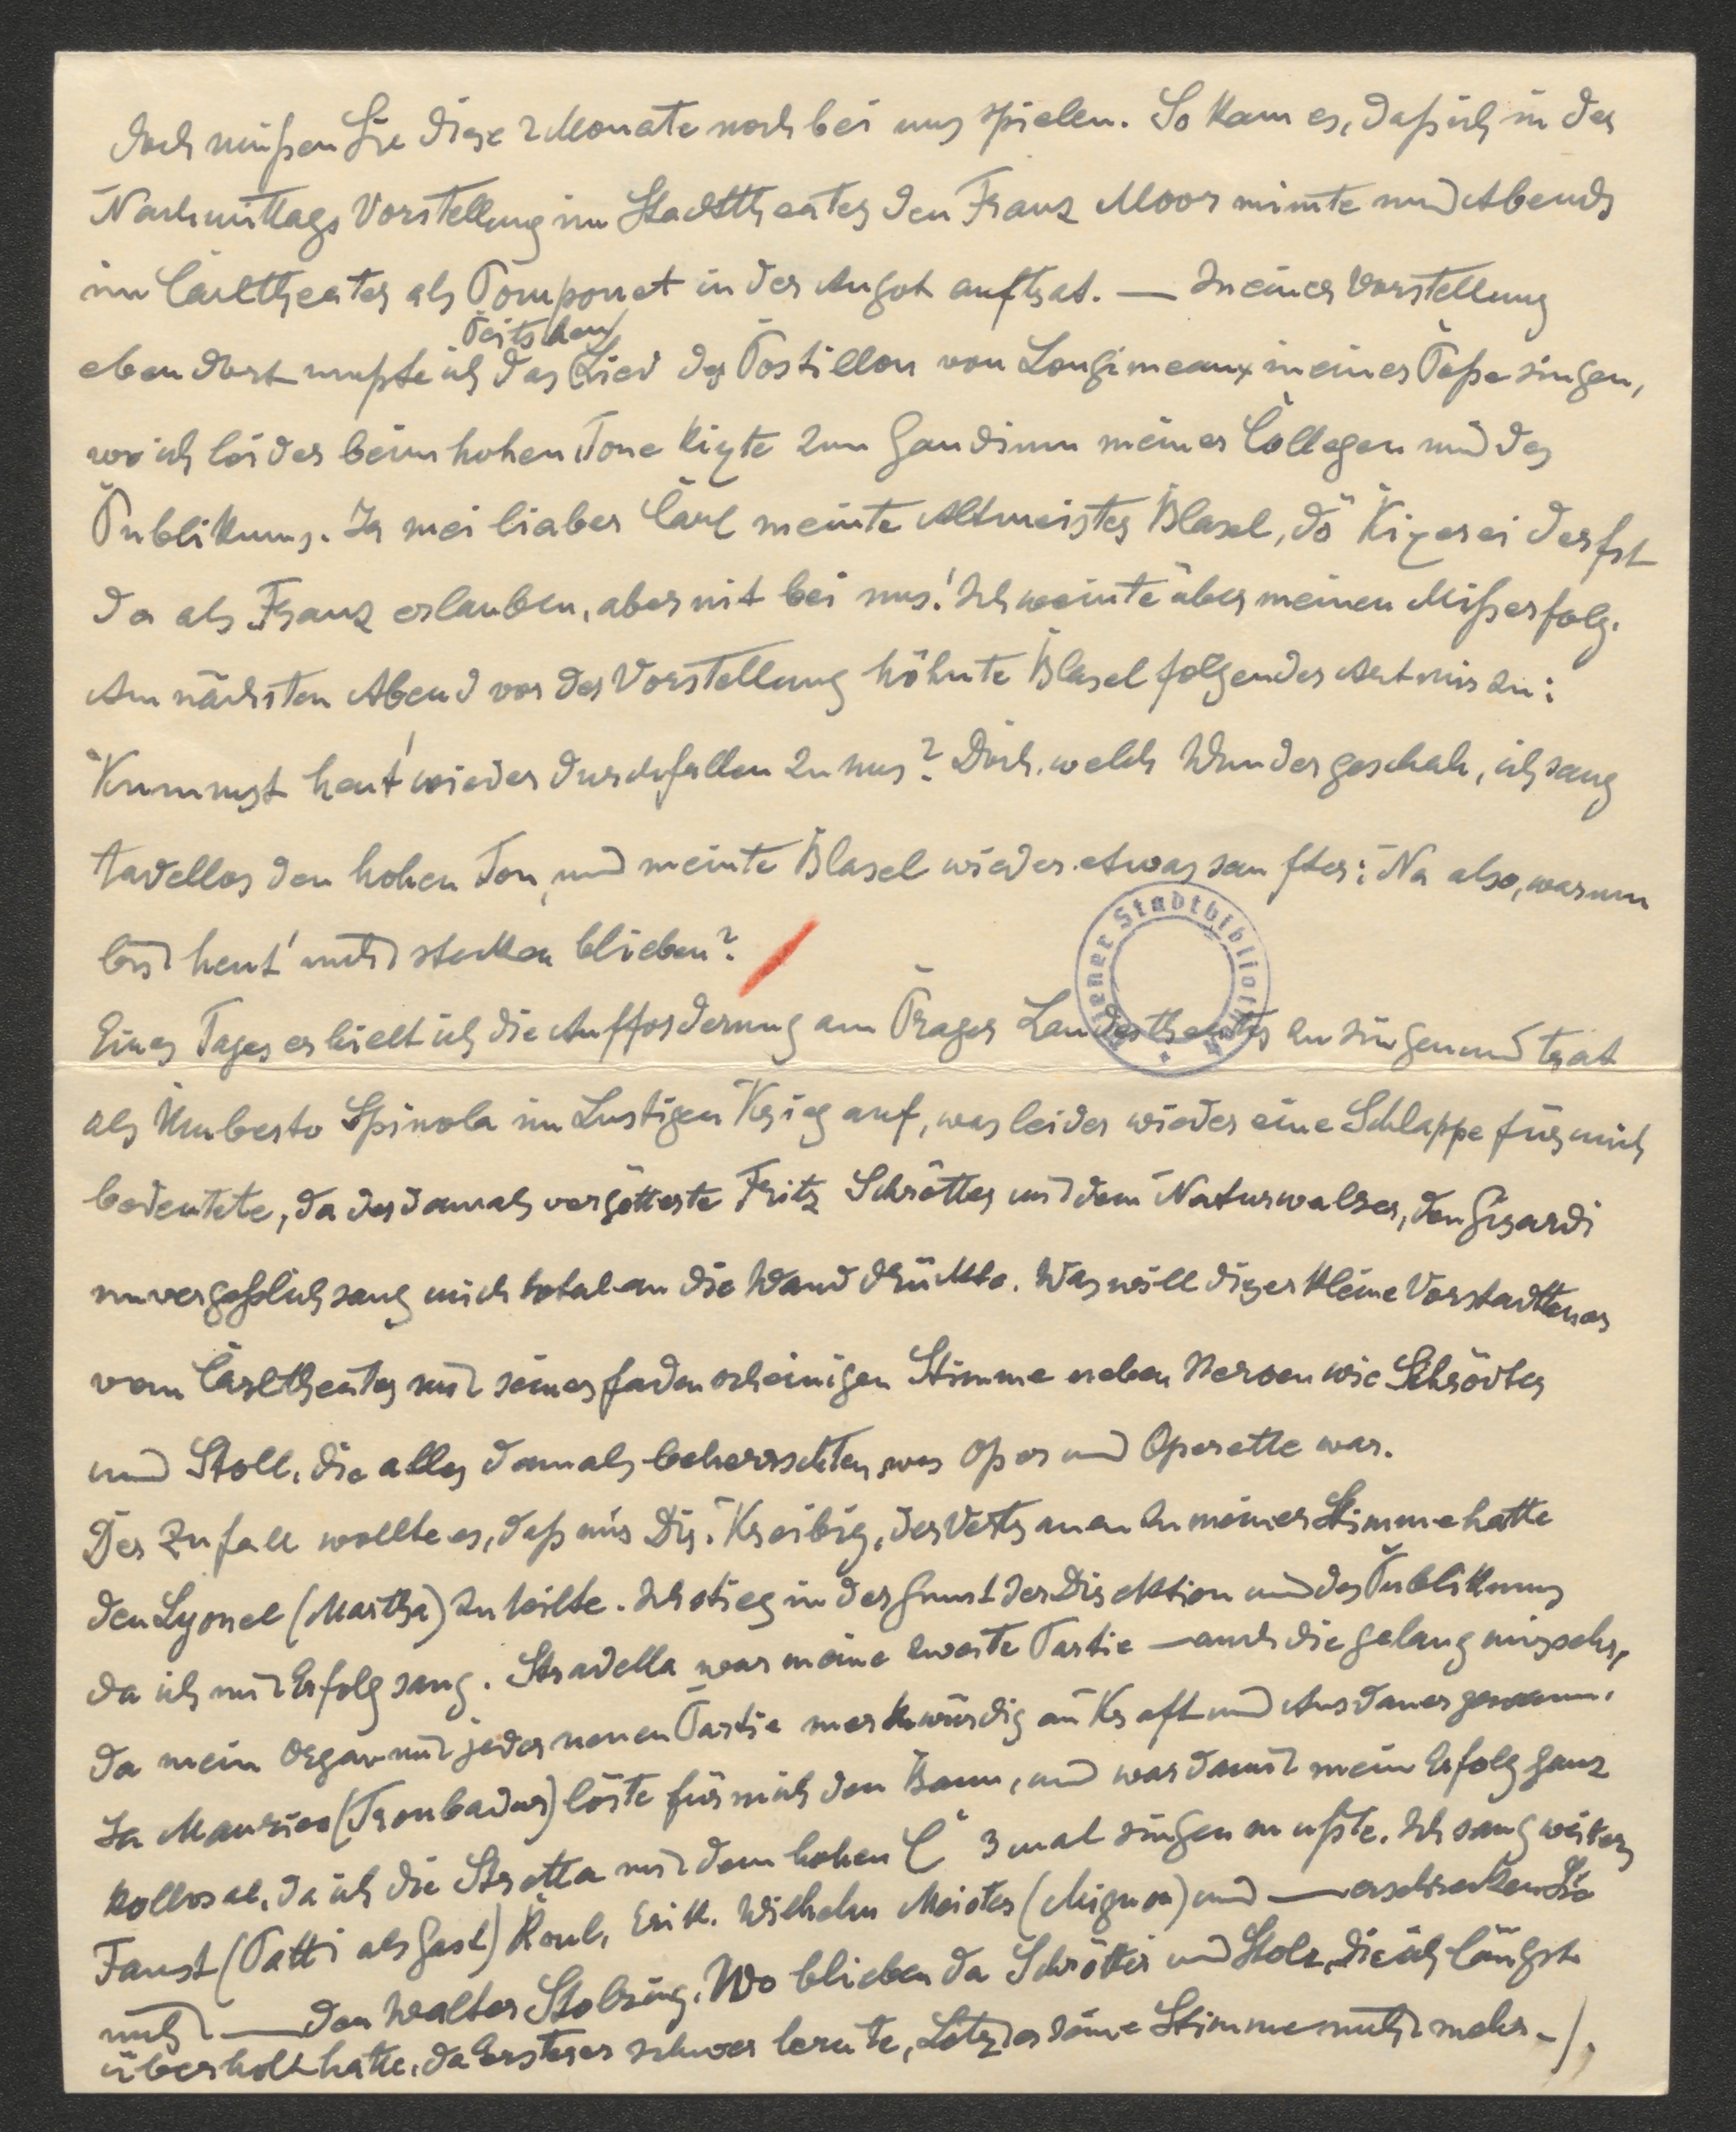 doch müßen Sie diese 2 Monate noch bei uns spielen. So kam es, daß ich in der
Nachmittags Vorstellung im Stadttheater den Franz Moor mimte und Abends
im Carltheater als Pomponet in der Angot auftrat. — In einer Vorstellung
Peitschen
eben dort mußte ich das Lied des Postillon von Longimeaux in einer Poße singen,
wo ich leider beim hohen Tone kixte zum Gaudium meiner Collegen und des
Publikums. Ja mei liaber Carl meinte Altmeister Blasel, dö Kixerei derfst
da als Franz erlauben, aber nit bei uns! Ich weinte über meinen Mißerfolg.
Am nächsten Abend vor der Vorstellung höhnte Blasel folgender Art mir zu:
Kummst heut' wieder durchfallen zu uns? Doch, welch Wunder geschah, ich sang
tadellos den hohen Ton, und meinte Blasel wieder etwas sanfter: Na also, warum
bist heut' nicht stecken blieben?
Eines Tages erhielt ich die Aufforderung am Prager Landestheater zu singen und trat
als Umberto Spinola im Lustigen Krieg auf, was leider wieder eine Schlappe für mich
bedeutete, da der damals vergötterte Fritz Schrötter mit dem Naturwalzer, den Girardi
unvergeßlich sang mich total an die Wand drückte. Was will dieser kleine Vorstadttenor
vom Carltheater mit seiner fadenscheinigen Stimme neben Heroen wie Schrödter
und Stoll, die alles damals beherrschten, was Oper und Operette war.
Der Zufall wollte es, daß mir Dir. Kreibig, der Vertrauen zu meiner Stimme hatte
den Lyonel (Martha) zuteilte. Ich stieg in der Gunst der Direktion und des Publikums
da ich mit Erfolg sang. Stradella war meine zweite Partie — auch die gelang mir sehr,
da mein Organ mit jeder neuen Partie merkwürdig an Kraft und Ausdauer gewann.
Ja Maurico (Troubadur) löste für mich den Bann, und war damit mein Erfolg ganz
kollosal, da ich die Stretta mit dem hohen C 3 mal singen mußte. Ich sang weiters
Faust (Patti als Gast) Roul, Erik. Wilhelm Meister (Mignon) und — erschrecken Sie
nicht — den Walter Stolzing. Wo blieben da Schrötter und Stolz, die ich längst
überholt hatte, da Ersterer schwer lernte, Letzter seine Stimme nicht mehr -/.
Wiener Stadtbibliothek